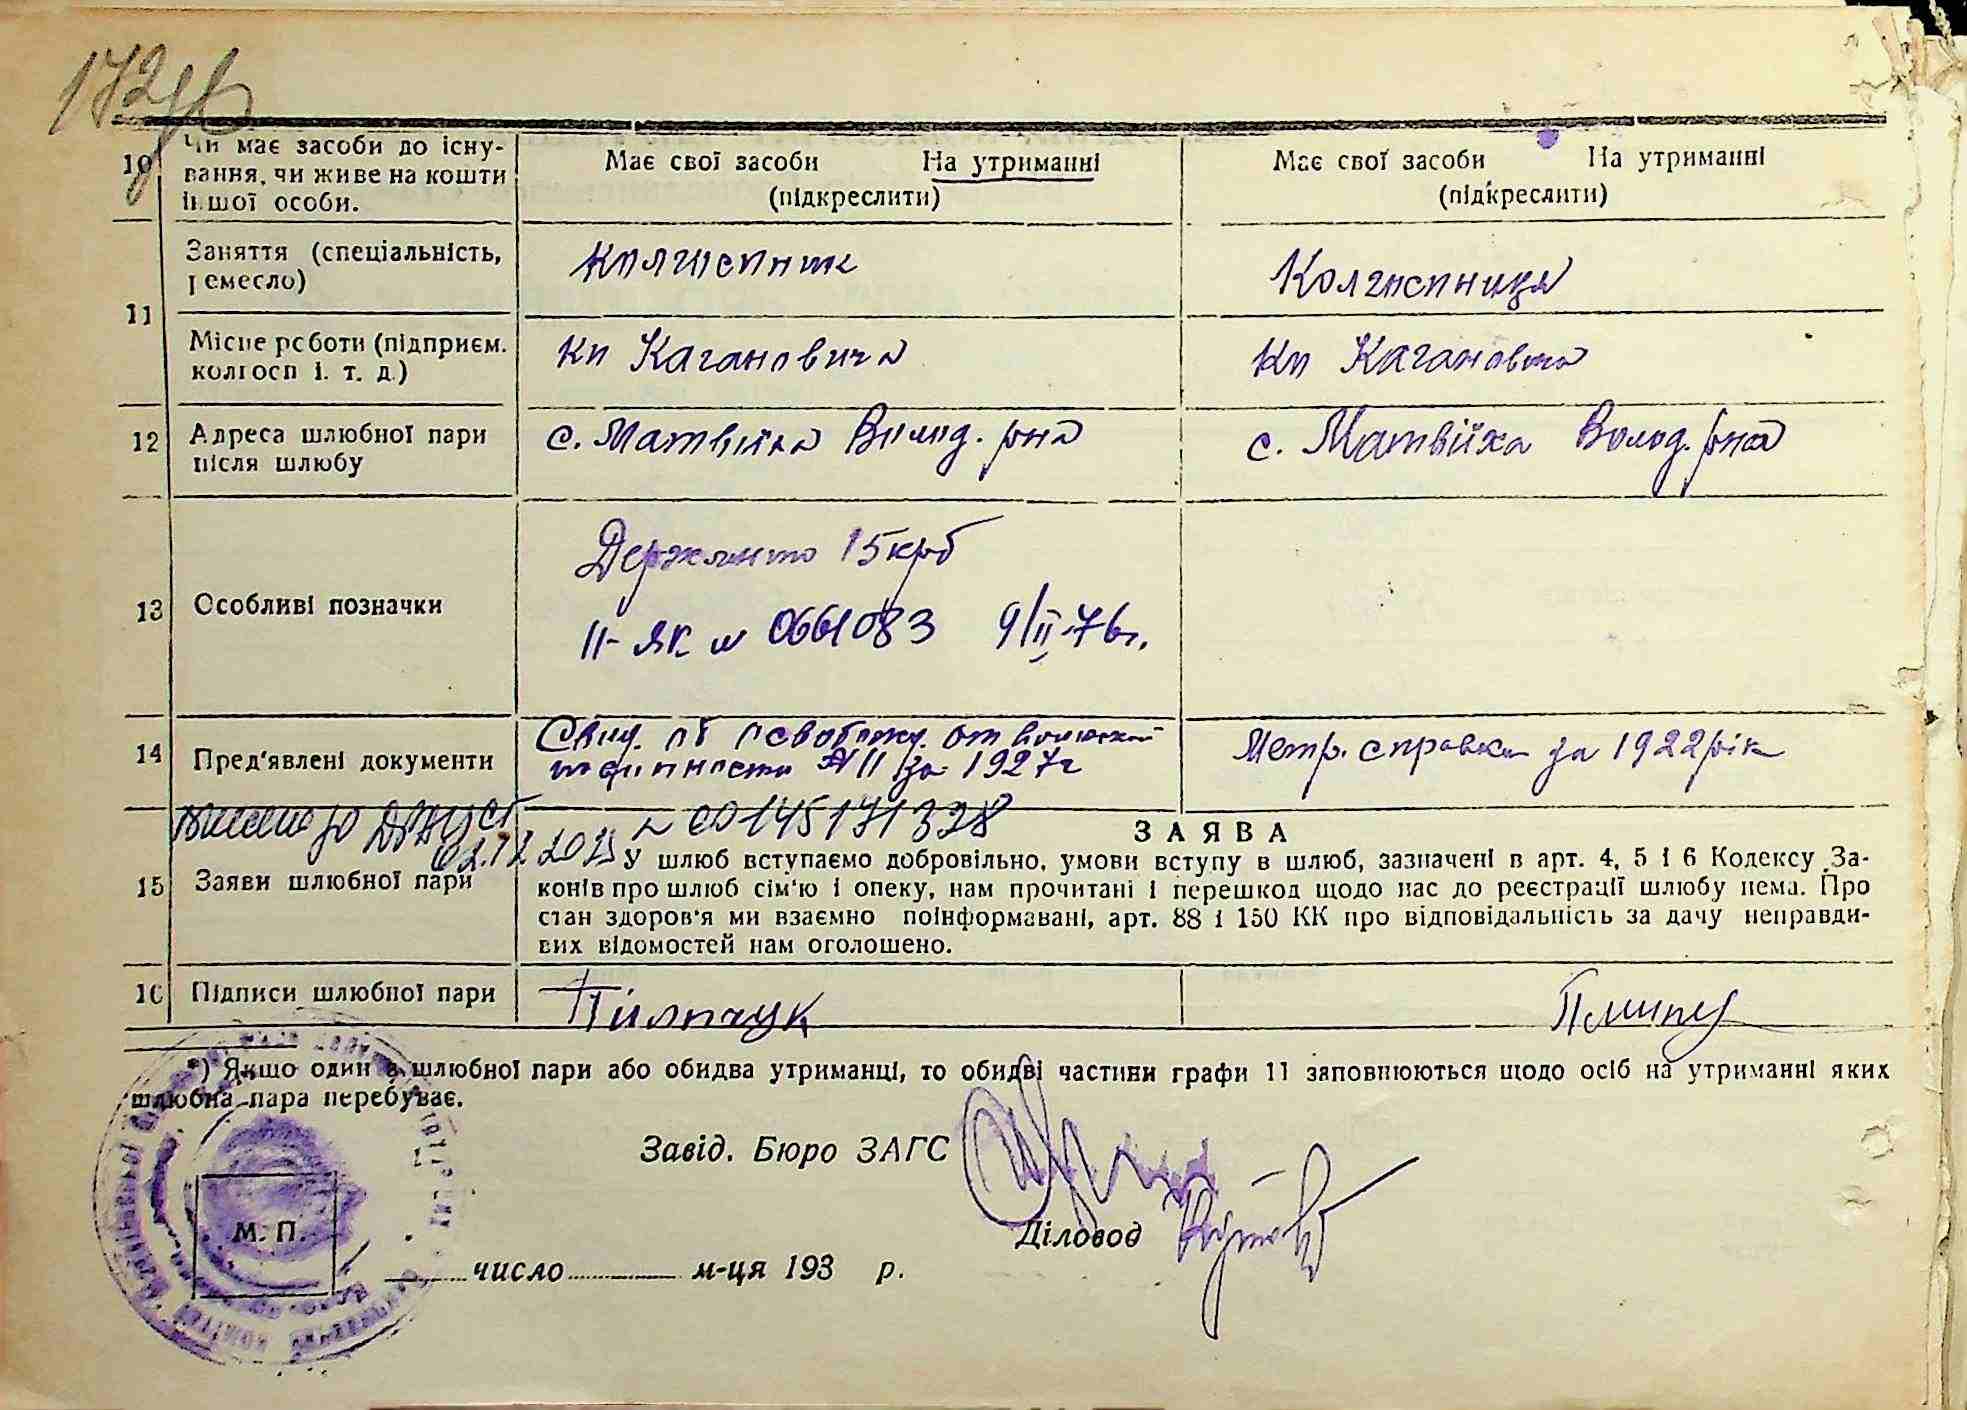 10
Чи має засоби до існу-
вання, чи живе на кошти
іншої особи.
Має свої засоби На утриманні
(підкреслити)
Має свої засоби На утриманні
(підкреслити)
11
Заняття (спеціальність,
ремесло)
Колгоспник
Колгоспниця
Місце роботи (підприєм.
колгосп і. т. д.)
Кп Кагановича
Кп Кагановича
12
Адреса шлюбної пари
після шлюбу
с. Матвійха Волод. р-на
с. Матвійха Волод. р-на
13
Особливі позначки
Держмито 15 крб
II-ЯК № 0661083 9/II-76г.
14
Пред'явлені документи
Свид. об освобожд. от воинской
повинности № 11 за 1927г
Метр. справка за 1922 рік
Внесено до ДРАЦСГ № 00145171328
02.12.2021
15
Заяви шлюбної пари
ЗАЯВА
У шлюб вступаємо добровільно, умови вступу в шлюб, зазначені в арт. 4, 5 і 6 Кодексу За-
конів про шлюб сім'ю і опеку, нам прочитані і перешкод щодо нас до реєстрації шлюбу нема. Про
стан здоров'я ми взаємно поінформавані, арт. 88 і 150 КК про відповідальність за дачу неправди-
вих відомостей нам оголошено.
16
Підписи шлюбної пари
Пилипчук
*) Якщо один в шлюбної пари або обидва утриманці, то обидві частини графи 11 заповнюються щодо осіб на утриманні яких
шлюбна пара перебуває.
Завід. Бюро ЗАГС
Діловод
М. П.
число м-ця 193 р.